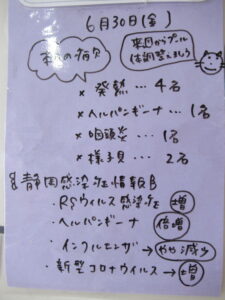 6月30日(金)
本日の病欠
来週からプール
体調整えましょう
× 発熱…4名
× ヘルパンギーナ…1名
× 咽頭炎…1名
× 様子見…2名
静岡感染症情報
・RSウイルス感染症 増
・ヘルパンギーナ 倍増
・インフルエンザ→やや減少
・新型コロナウイルス→増